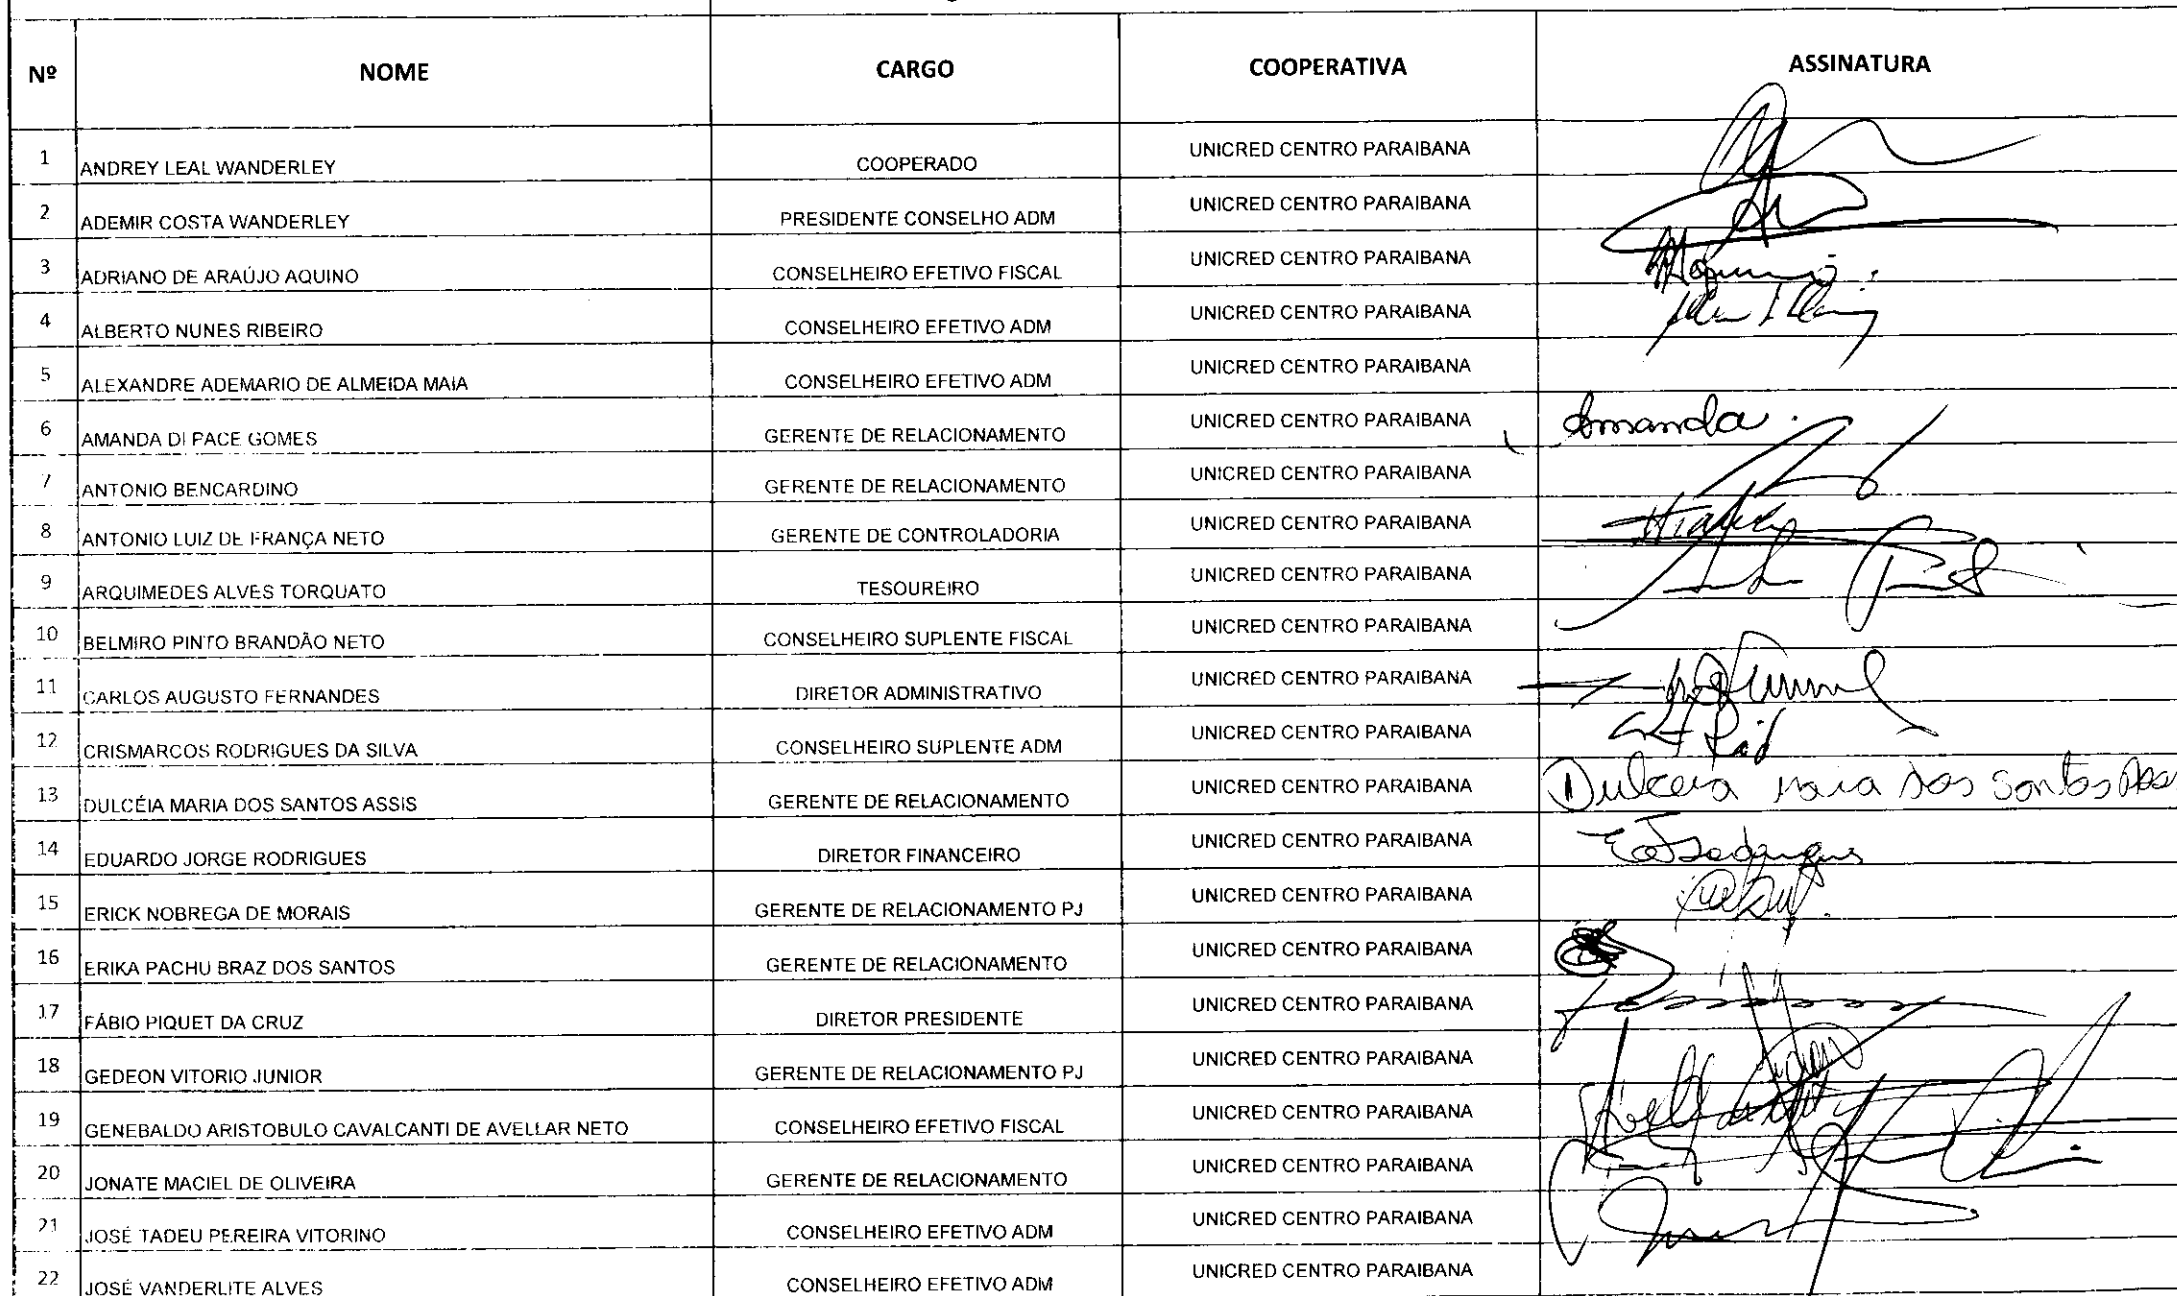 Nº NOME CARGO COOPERATIVA ASSINATURA
1 ANDREY LEAL WANDERLEY COOPERADO UNICRED CENTRO PARAIBANA
2 ADEMIR COSTA WANDERLEY PRESIDENTE CONSELHO ADM UNICRED CENTRO PARAIBANA
3 ADRIANO DE ARAÚJO AQUINO CONSELHEIRO EFETIVO FISCAL UNICRED CENTRO PARAIBANA
4 ALBERTO NUNES RIBEIRO CONSELHEIRO EFETIVO ADM UNICRED CENTRO PARAIBANA
5 ALEXANDRE ADEMARIO DE ALMEIDA MAIA CONSELHEIRO EFETIVO ADM UNICRED CENTRO PARAIBANA
6 AMANDA DI PACE GOMES GERENTE DE RELACIONAMENTO UNICRED CENTRO PARAIBANA Amanda
7 ANTONIO BENCARDINO GERENTE DE RELACIONAMENTO UNICRED CENTRO PARAIBANA
8 ANTONIO LUIZ DE FRANÇA NETO GERENTE DE CONTROLADORIA UNICRED CENTRO PARAIBANA
9 ARQUIMEDES ALVES TORQUATO TESOUREIRO UNICRED CENTRO PARAIBANA
10 BELMIRO PINTO BRANDÃO NETO CONSELHEIRO SUPLENTE FISCAL UNICRED CENTRO PARAIBANA
11 CARLOS AUGUSTO FERNANDES DIRETOR ADMINISTRATIVO UNICRED CENTRO PARAIBANA
12 CRISMARCOS RODRIGUES DA SILVA CONSELHEIRO SUPLENTE ADM UNICRED CENTRO PARAIBANA
13 DULCÉIA MARIA DOS SANTOS ASSIS GERENTE DE RELACIONAMENTO UNICRED CENTRO PARAIBANA Dulceia maria dos santos
14 EDUARDO JORGE RODRIGUES DIRETOR FINANCEIRO UNICRED CENTRO PARAIBANA
15 ERICK NOBREGA DE MORAIS GERENTE DE RELACIONAMENTO PJ UNICRED CENTRO PARAIBANA
16 ERIKA PACHU BRAZ DOS SANTOS GERENTE DE RELACIONAMENTO UNICRED CENTRO PARAIBANA
17 FÁBIO PIQUET DA CRUZ DIRETOR PRESIDENTE UNICRED CENTRO PARAIBANA
18 GEDEON VITORIO JUNIOR GERENTE DE RELACIONAMENTO PJ UNICRED CENTRO PARAIBANA
19 GENEBALDO ARISTOBULO CAVALCANTI DE AVELLAR NETO CONSELHEIRO EFETIVO FISCAL UNICRED CENTRO PARAIBANA
20 JONATE MACIEL DE OLIVEIRA GERENTE DE RELACIONAMENTO UNICRED CENTRO PARAIBANA
21 JOSÉ TADEU PEREIRA VITORINO CONSELHEIRO EFETIVO ADM UNICRED CENTRO PARAIBANA
22 JOSÉ VANDERLITE ALVES CONSELHEIRO EFETIVO ADM UNICRED CENTRO PARAIBANA